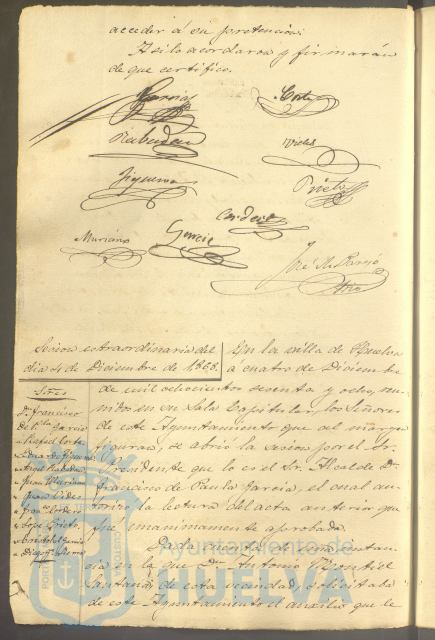 acceder á su pretencion.
Asi lo acordaron y firmarán
de que certifico.
Garcia
Corte
Rabadan
Vides
Figueroa
Prieto
Cordero
Muriano
Garcia
José M. Parejo
Srio
Sesion extraordinaria del
dia 4 de Diciembre de 1868.
Sres
Dn. Francisco
de Pla. Garcia
Rafael Corte
Eduardo Figueroa
Angel Rabadan
Juan Muriano
Juan Vides
Franco. Cordero
Lope Prieto
Cristobal Garcia
Diego
En la villa de Huelva
á cuatro de Diciembre
de mil ochocientos sesenta y ocho, reu-
nidos en su Sala Capitular, los Señores
de este Ayuntamiento que al margen
figuran, se abrió la sesion por el Sr.
Presidente que lo es el Sr. Alcalde Dn.
Francisco de Paula Garcia, el cual au-
torizo la lectura del acta anterior que
fue unanimamente aprobada.
Dada cuenta de una instan-
cia en la que Dn. Antonio Montiel
Santana, de esta vecindad, solicitaba
de este Ayuntamiento el auxilio que le
Ayuntamiento de
HUELVA